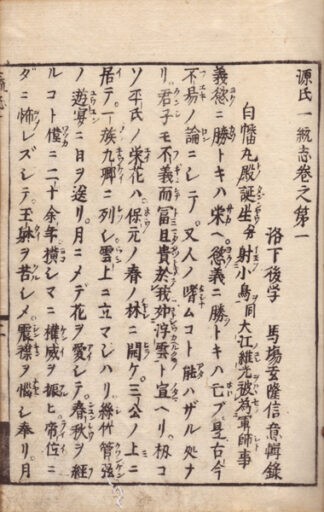 源氏一統志巻之第一
洛下後学 馬場玄隆信意輯録
白幡丸殿誕生并射小鳥同大江維光被為軍師事
義慾ニ勝トキハ栄ヘ慾義ニ勝トキハ亡ブ是古今
不易ノ論ニシテ又人ノ嗜ムコト能ハザル処ナ
リ君子モ不義而冨且貴於我如浮雲ト宣ヘリ扨コ
ソ平氏ノ栄花ハ保元ノ春ノ林ニ開ケ三公ノ上ニ
居テ一族九卿ニ列シ雲上ニ立マジハリ糸竹管弦
ノ遊宴ニ日ヲ送リ月ニメデ花ヲ愛シテ春秋ヲ経
ルコト僅ニ二十余年横シマニ権威ヲ振ヒ帝位ニ
ダニ怖レズシテ王躰ヲ苦シメ震襟ヲ悩シ奉リ月